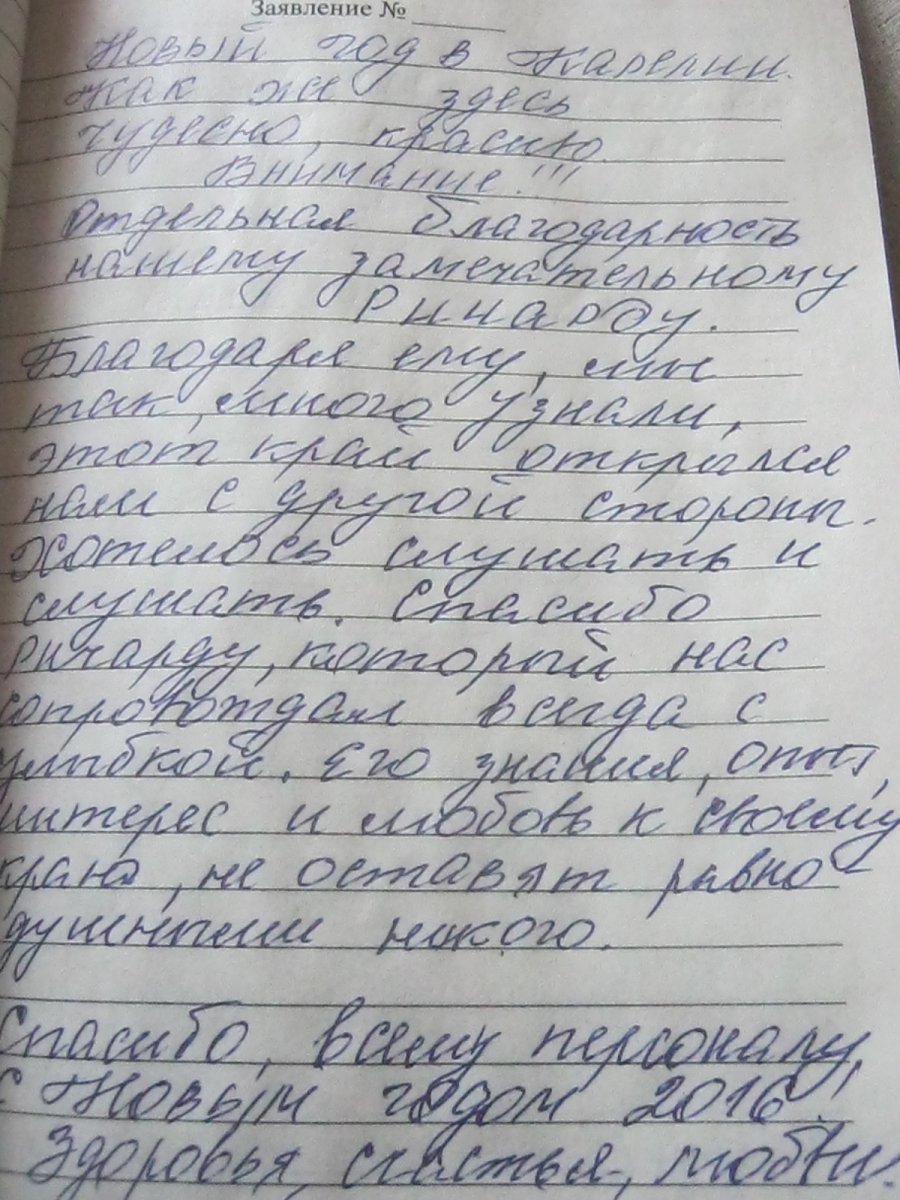 Заявление № ______
Новый год в Карелии.
Как же здесь
чудесно, красиво.
Внимание!!!
Отдельная благодарность
нашему замечательному
Ричарду.
Благодаря ему, мы
так много узнали,
этот край открылся
нам с другой стороны.
Хотелось слушать и
слушать. Спасибо
Ричарду, который нас
сопровождал всегда с
улыбкой. Его знания, опыт,
интерес и любовь к своему
краю, не оставят равно-
душными никого.
Спасибо, всему персоналу,
С Новым годом 2016!
Здоровья, счастья, любви.